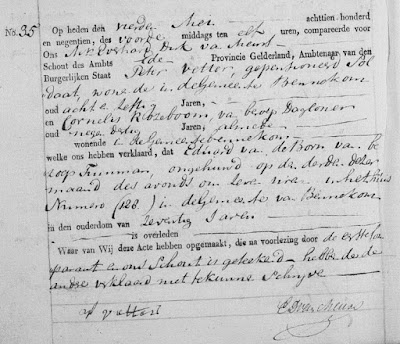 No. 35
Op heden den vierde Mei achttien honderd
en negentien, des voorde middags ten elf uren, compareerde voor
Ons Mr. Everhard Dirk van
Schout des Ambts Ede Provincie Gelderland, Ambtenaar van den
Burgerlijken Staat Peter Vetter, gepensioneerd Sol
daat, wonende in de Gemeente Bennekom
oud acht en Jaren,
en Cornelis van beroep Daglooner
oud negen dertig Jaren, almede
wonende in de Gemeente Bennekom
welke ons hebben verklaard, dat Eduard van de Born van be
roep Timmerman, ongehuwd op de derde dezer
maand des avonds om zeven uren in het Huis
Numero (128) in de Gemeente van Bennekom
in den ouderdom van zeventig Jaren
is overleden
Waar van Wij deze Acte hebben opgemaakt, die na voorlezing door de eerste Com
parant en ons Schout is geteekend hebbende de
andre verklaard niet te kunne Schryve
p vetter